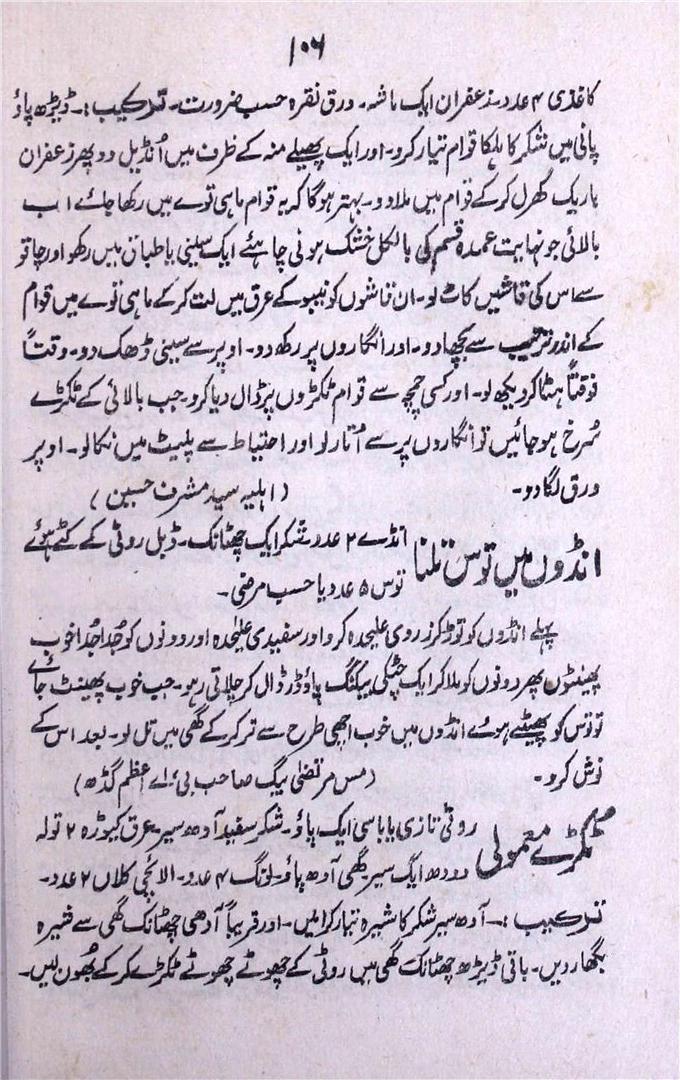 ۱۰۶
کاغذی ۴ عدد۔ زعفران ایک ماشہ۔ ورق نقرہ حسب ضرورت۔ ترکیب :۔ ڈیڑھ پاؤ
پانی میں شکر کا ہلکا قوام تیار کرو۔ اور ایک پھیلے منہ کے ظرف میں اُنڈیل دو پھر زعفران
باریک کھرل کر کے قوام میں ملا دو۔ بہتر ہوگا کہ یہ قوام ماہی توے میں رکھا جائے اب
بالائی جو نہایت عمدہ قسم کی بالکل خشک ہونی چاہئے ایک سینی یا طباق میں رکھو اور چاقو
سے اس کی قاشیں کاٹ لو۔ ان قاشوں کو نیبو کے عرق میں لت کر کے ماہی توے میں قوام
کے اندر ترتیب سے بچھا دو۔ اور انگاروں پر رکھ دو۔ اوپر سے سینی ڈھک دو۔ وقتاً
فوقتاً ہٹا کر دیکھ لو۔ اور کسی چمچہ سے قوام ٹکڑوں پر ڈال دیا کرو۔ جب بالائی کے ٹکڑے
سُرخ ہو جائیں تو انگاروں پر سے اُتار لو اور احتیاط سے پلیٹ میں نکالو۔ اوپر
ورق لگا دو۔ (اہلیہ سید مشرف حسین)
انڈوں میں توس تلنا انڈے ۲ عدد شکر ایک چھٹانک۔ ڈبل روٹی کے کٹے ہوئے
توس ۵ عدد یا حسب مرضی۔
پہلے انڈوں کو توڑ کر زردی علیحدہ کرو اور سفیدی علیٰحدہ اور دونوں کو جُدا جُدا خوب
پھینٹوں پھر دونوں کو ملا کر ایک چٹکی بیکنگ پاؤڈر ڈال کر چلاتی رہو۔ جب خوب پھینٹ جائے
تو توس کو پھینٹے ہوئے انڈوں میں خوب اچھی طرح سے تر کر کے گھی میں تل لو۔ بعد اس کے
نوش کرو۔ (مس مرتضیٰ بیگ صاحب بی۔اے اعظم گڈھ)
ٹکڑے معمولی روٹی تازی یا باسی ایک پاؤ۔ شکر سفید آدھ سیر۔ عرق کیوڑہ ۲ تولہ
دودھ ایک سیر گھی آدھ پاؤ۔ لونگ ۴ عدد۔ الائچی کلاں ۲ عدد۔
ترکیب :۔ آدھ سیر شکر کا شیرہ تیار کرلیں۔ اور قریباً آدھی چھٹانک گھی سے شیرہ
بگھار دیں۔ باقی ڈیڑھ چھٹانک گھی میں روٹی کے چھوٹے چھوٹے ٹکڑے کر کے بُھون لیں۔